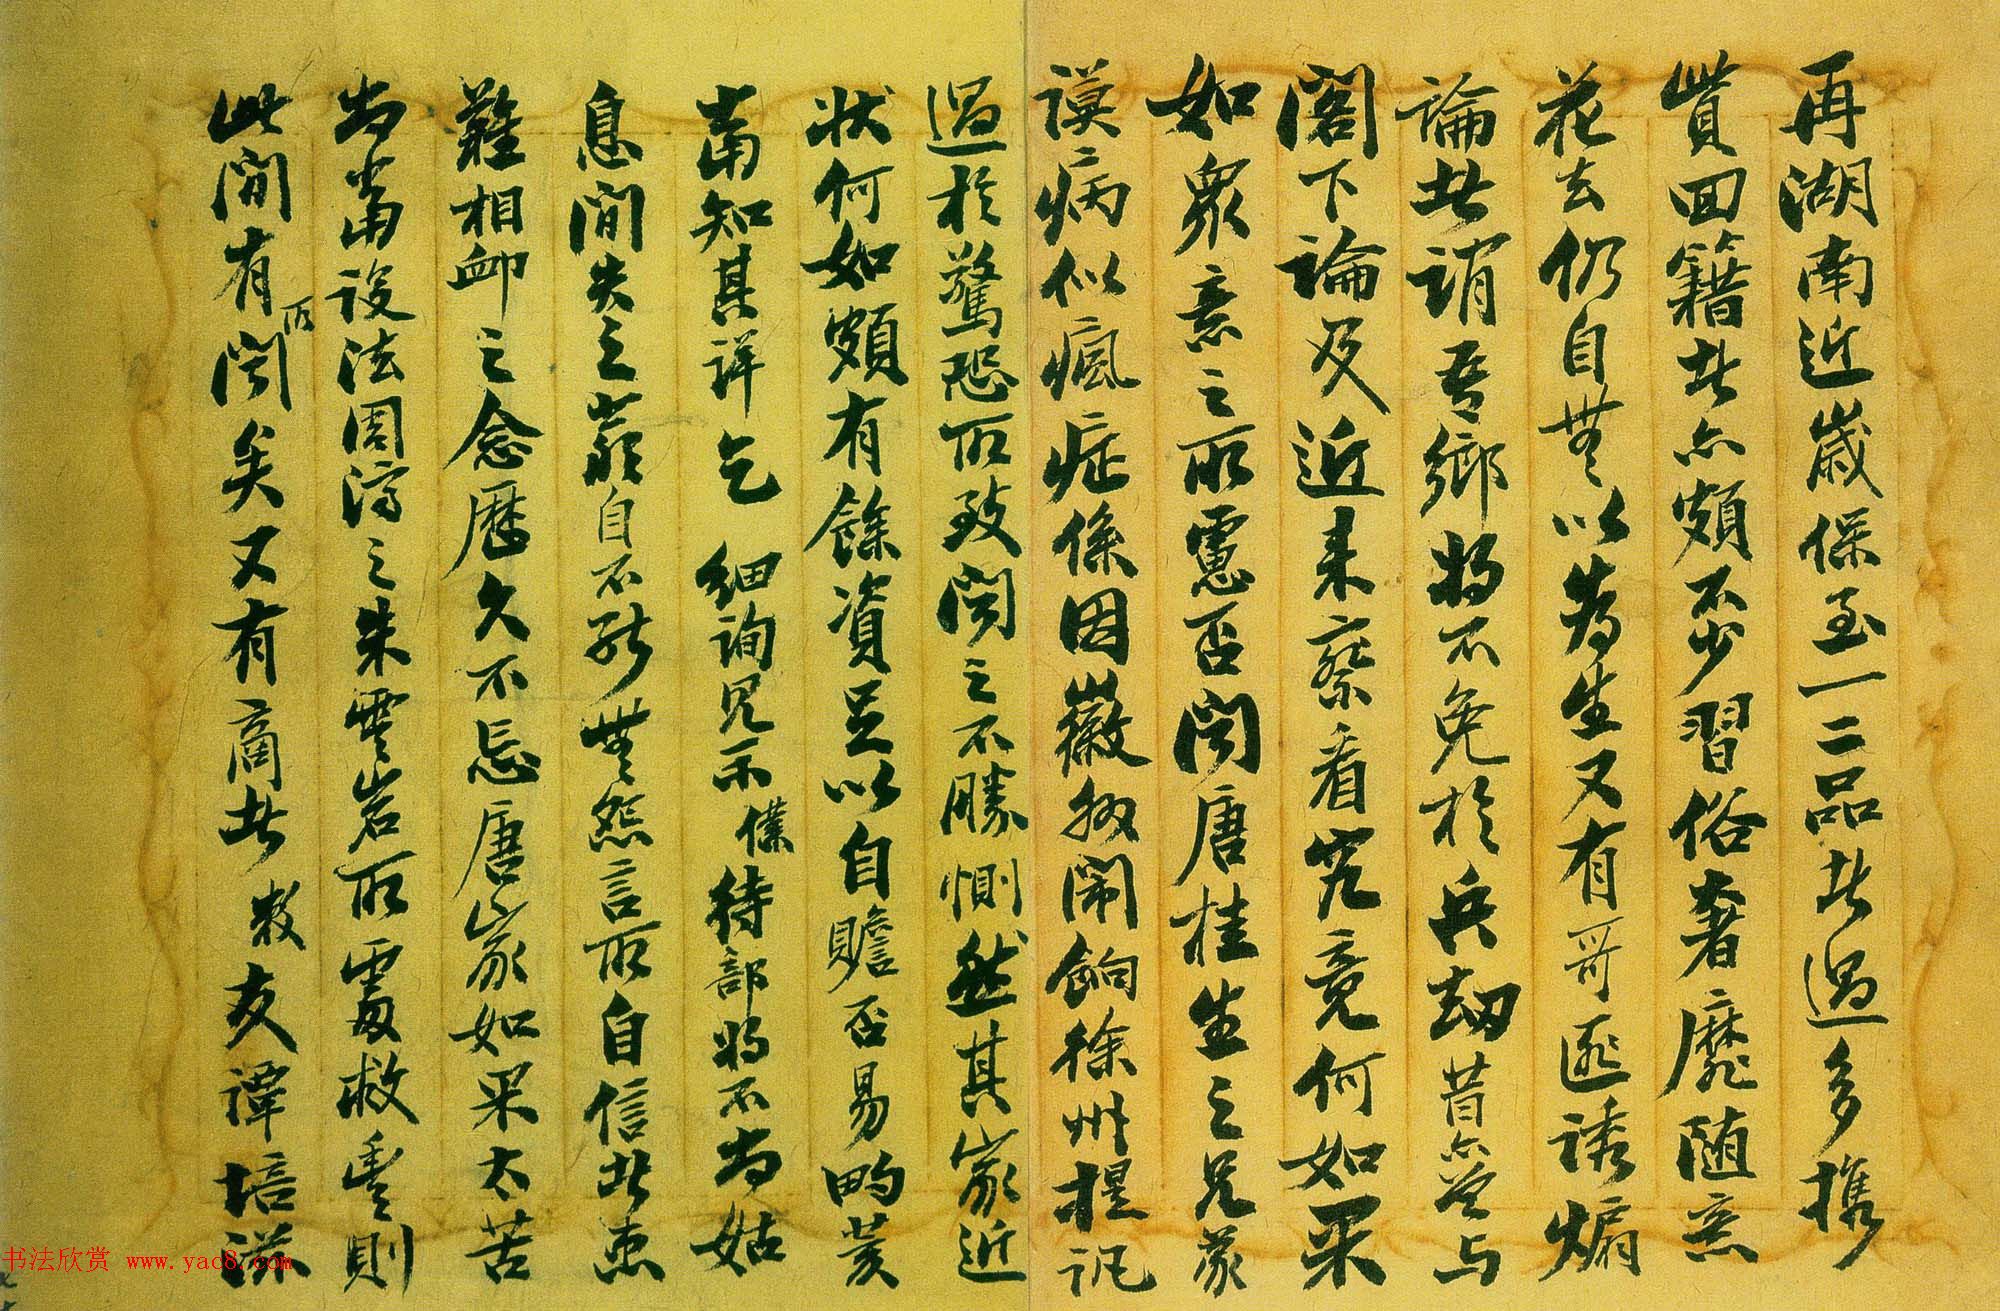 再湖南近歲保至一二品者過多攜
貲回籍者亦頗不少習俗奢靡隨意
花去仍自無以為生又有哥匪誘煽
論者謂吾鄉將不免於兵劫昔亦曾與
閣下論及近來察看究竟何如果
如眾意之所慮否聞唐桂生之兄蒙
謨病似瘋症係因徽州鬧餉徐州提訊
過於驚恐所致聞之不勝惻然其家近
狀何如頗有餘資足以自贍否易畇荄
當知其詳乞 細詢見示僕待部將不為姑
息間失之嚴自不能無怨言所自信者患
難相卹之念歷久不忘唐家如果太苦
尚當設法周濟之朱雲岩所處救豐則
此間有所聞矣又有商者 教友譚培滋
书法欣赏 www.yac8.com